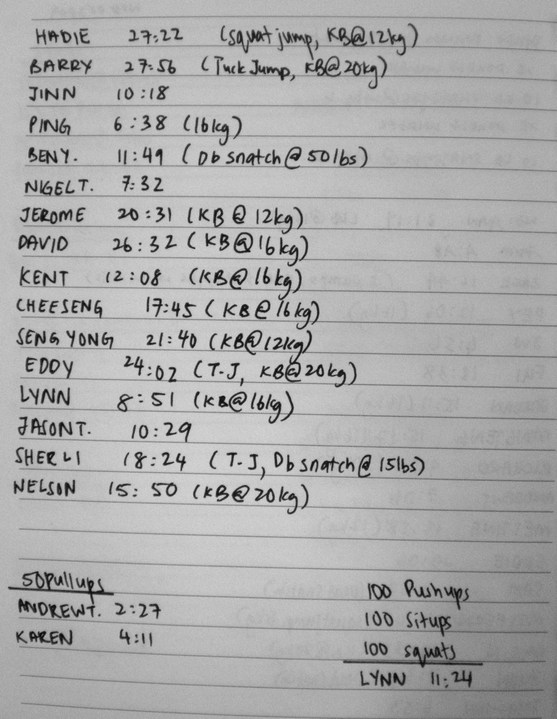 HADIE 27:22 (squat jump, KB@12kg)
BARRY 27:56 (Tuck Jump, KB@20kg)
JINN 10:18
PING 6:38 (16kg)
BENY. 11:49 (Db snatch @ 50lbs)
NIGEL T. 7:32
JEROME 20:31 (KB @ 12kg)
DAVID 26:32 (KB@16kg)
KENT 12:08 (KB@16kg)
CHEESENG 17:45 (KB@16kg)
SENG YONG 21:40 (KB@12kg)
EDDY 24:02 (T-J, KB@20kg)
LYNN 8:51 (KB@16kg)
JASON T. 10:29
SHERLI 18:24 (T-J, Db snatch@15lbs)
NELSON 15:50 (KB@20kg)
50 Pullups
ANDREW T. 2:27
KAREN 4:11
100 Pushups
100 Situps
100 squats
LYNN 11:24